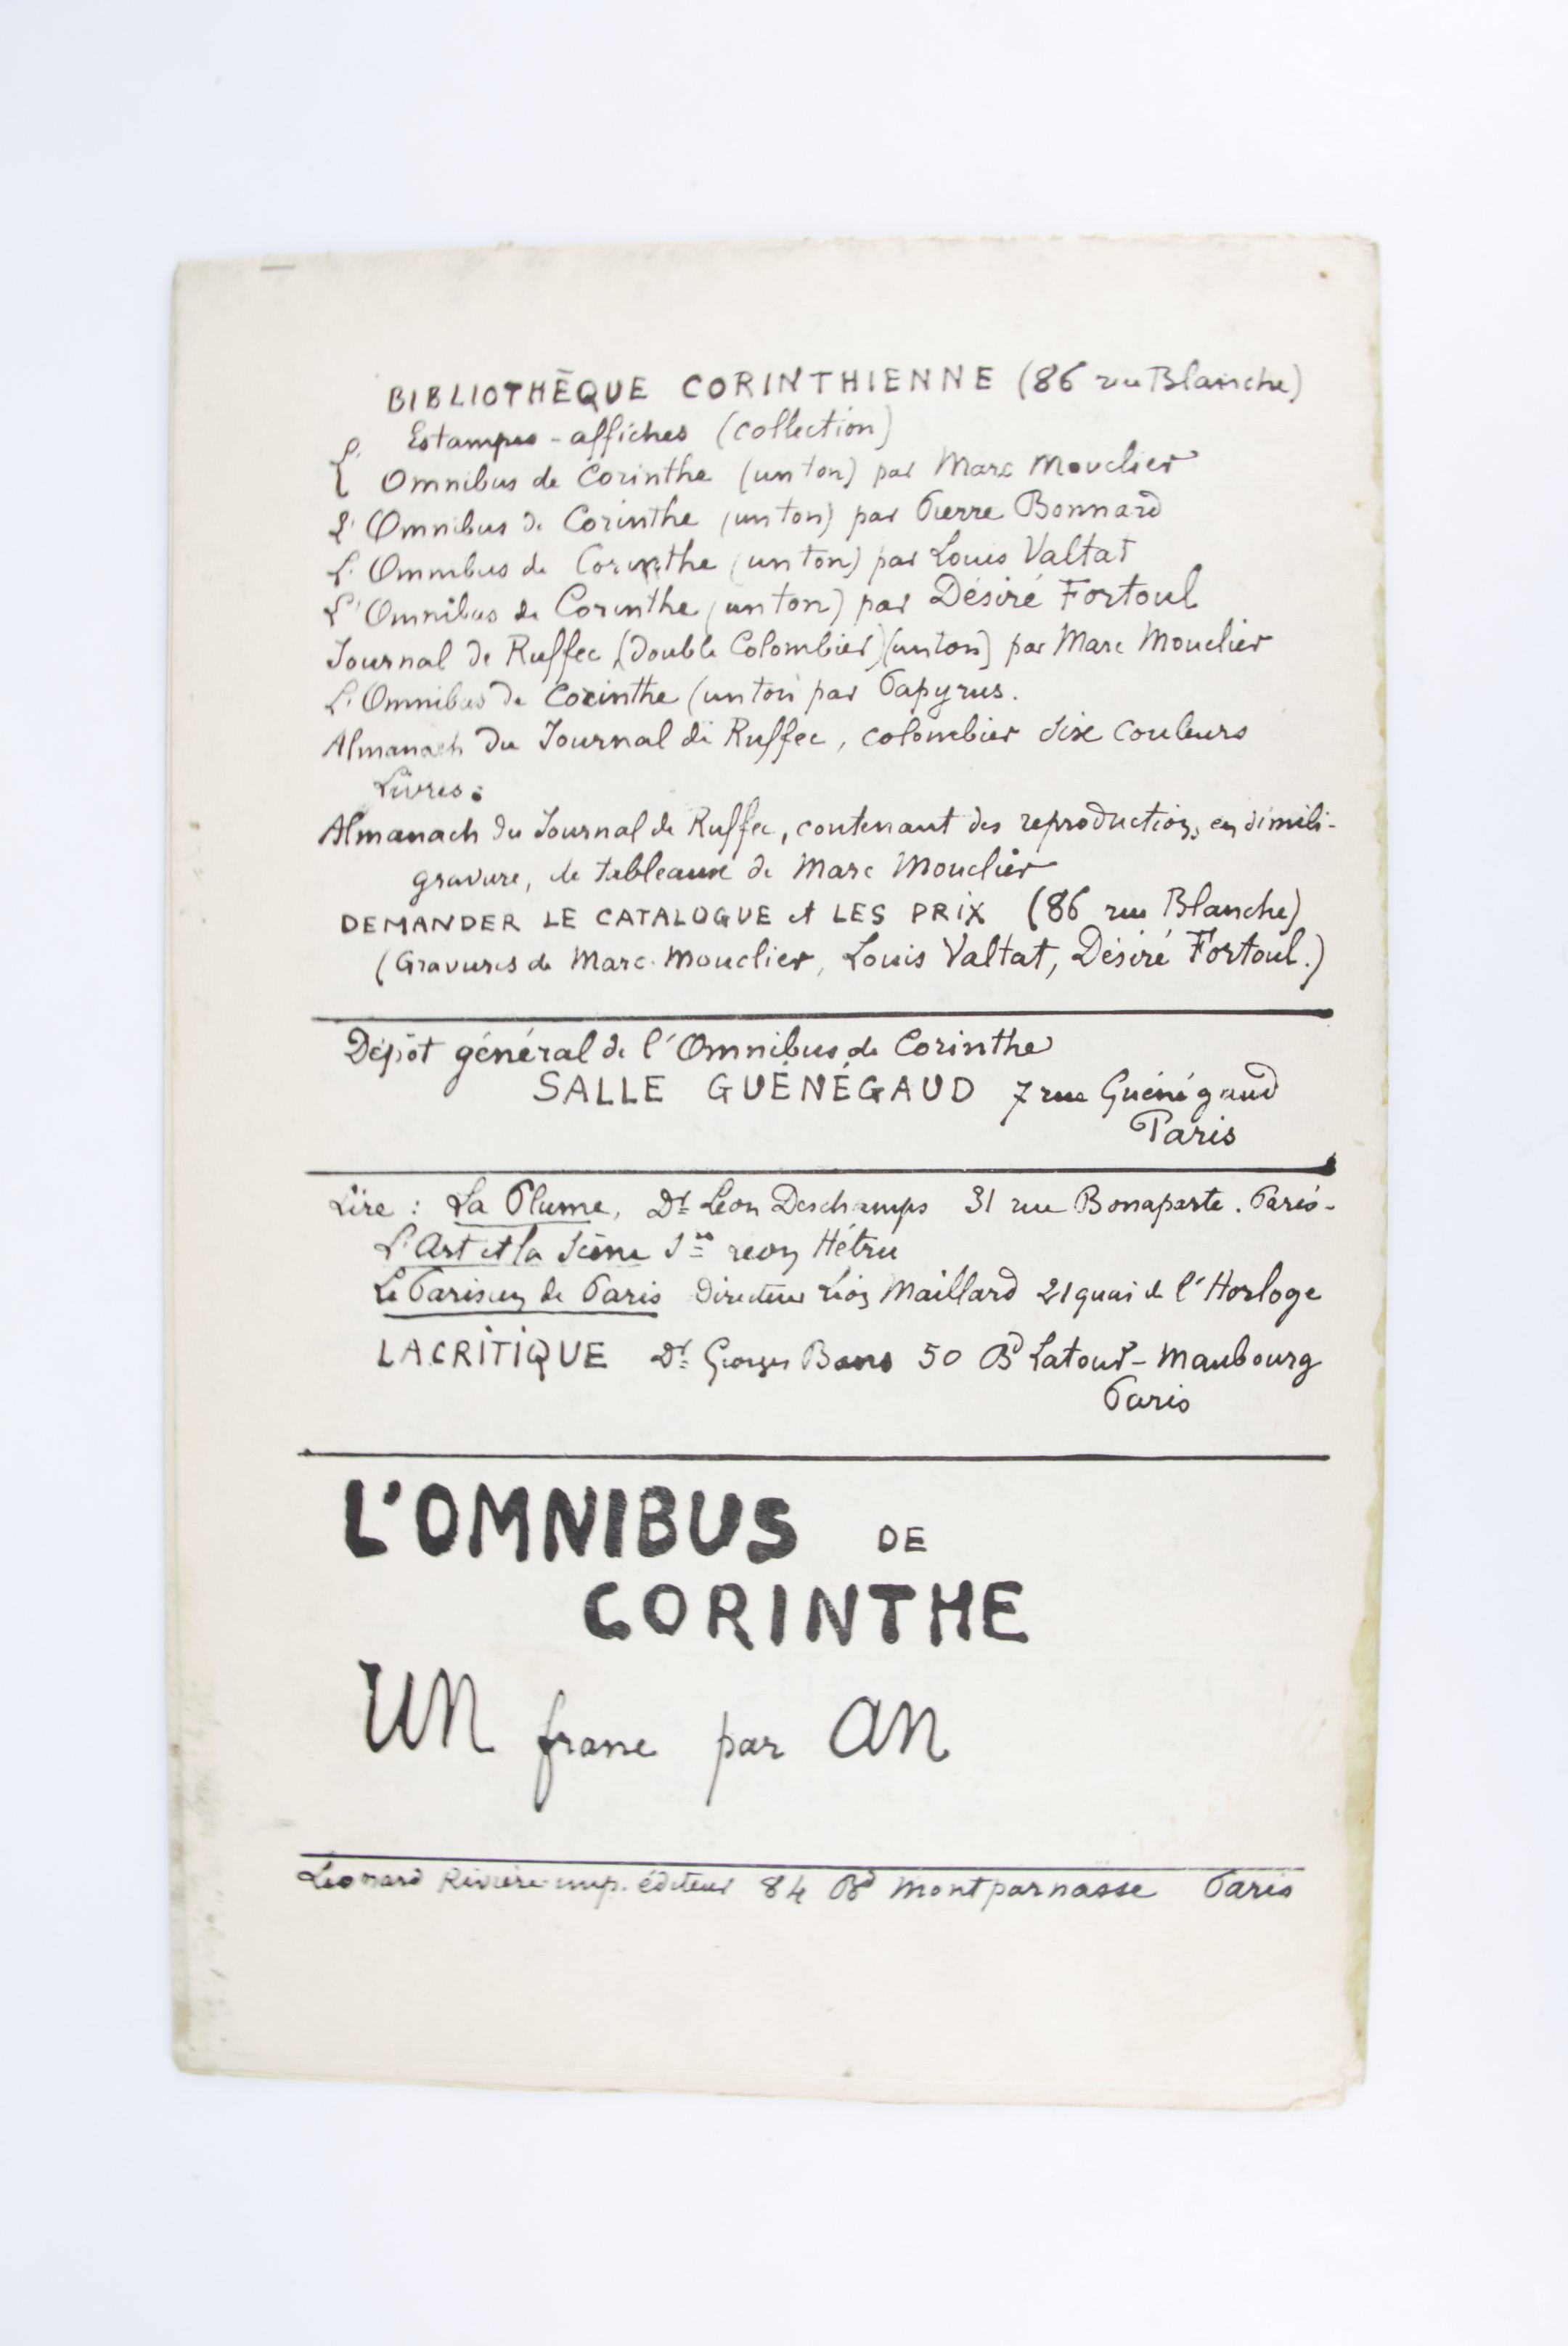 BIBLIOTHÈQUE CORINTHIENNE (86 rue Blanche)
Estampes - affiches (collection)
L' Omnibus de Corinthe (un ton) par Marc Mouclier
L' Omnibus de Corinthe (un ton) par Pierre Bonnard
L' Omnibus de Corinthe (un ton) par Louis Valtat
L' Omnibus de Corinthe (un ton) par Désiré Fortoul
Journal de Ruffec (double Colombier) (un ton) par Marc Mouclier
L'Omnibus de Corinthe (un ton) par Papyrus.
Almanach du Journal de Ruffec, colombier six couleurs
Livres :
Almanach du Journal de Ruffec, contenant des reproductions en simili-
gravure, de tableaux de Marc Mouclier
DEMANDER LE CATALOGUE et LES PRIX (86 rue Blanche)
(Gravures de Marc Mouclier, Louis Valtat, Désiré Fortoul.)
Dépôt général de l'Omnibus de Corinthe
SALLE GUÉNÉGAUD 7 rue Guénégaud
Paris
Lire : La Plume, Dr Léon Deschamps 31 rue Bonaparte. Paris-
L'Art et la Scène
Le Parisien de Paris Directeur Léon Maillard 21 quai de l'Horloge
LA CRITIQUE Dr Georges Bans 50 Bd Latour-Maubourg
Paris
L'OMNIBUS DE
CORINTHE
UN franc par AN
Léonard Rivière imp. éditeur 84 Bd Montparnasse Paris